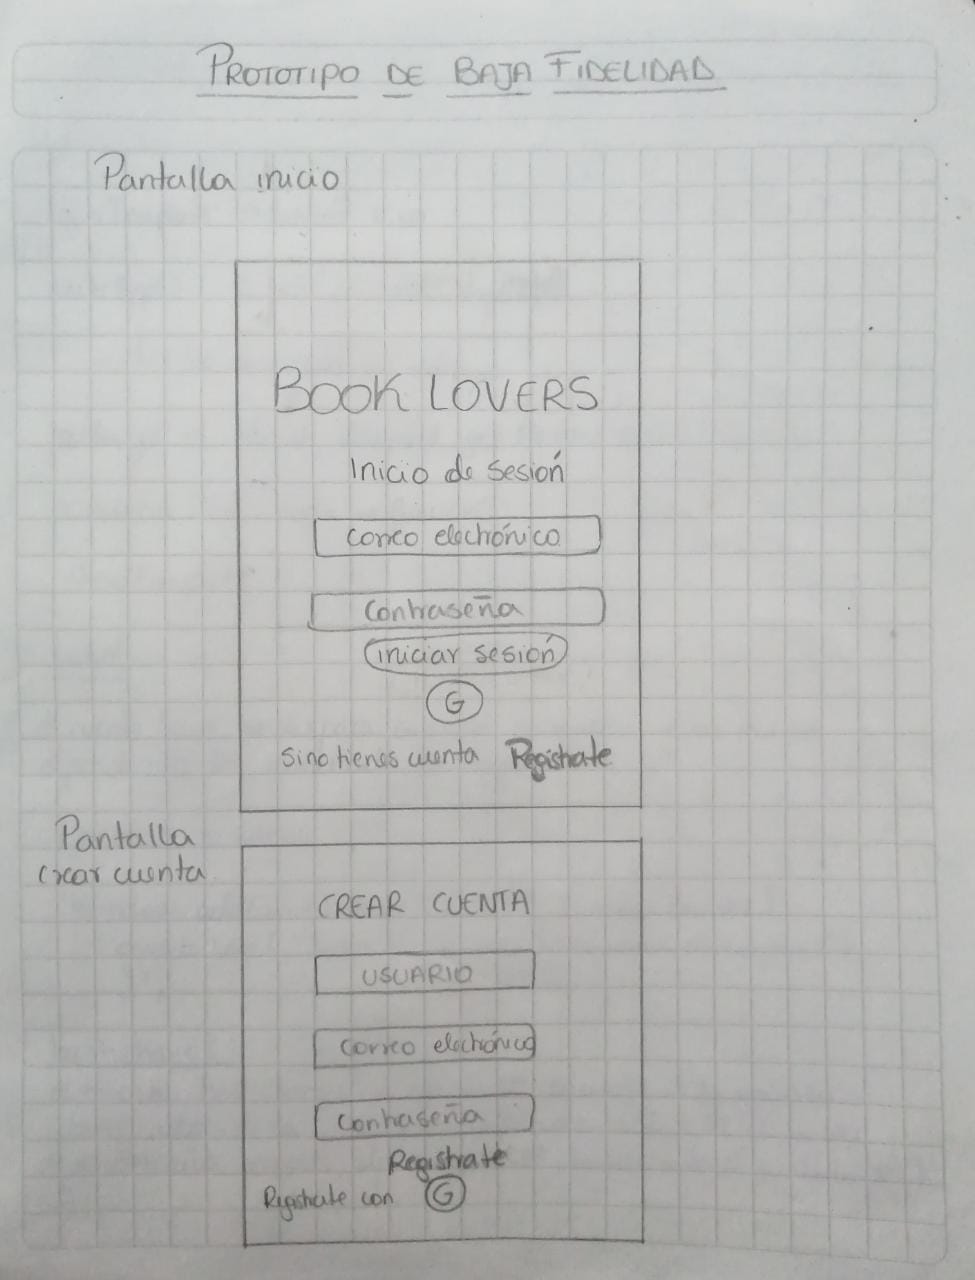 PROTOTIPO DE BAJA FIDELIDAD
Pantalla inicio
BOOK LOVERS
Inicio de sesión
correo electrónico
Contraseña
iniciar sesión
G
Si no tienes cuenta Registrate
Pantalla
crear cuenta
CREAR CUENTA
USUARIO
correo electrónico
Contraseña
Registrate
Registrate con G